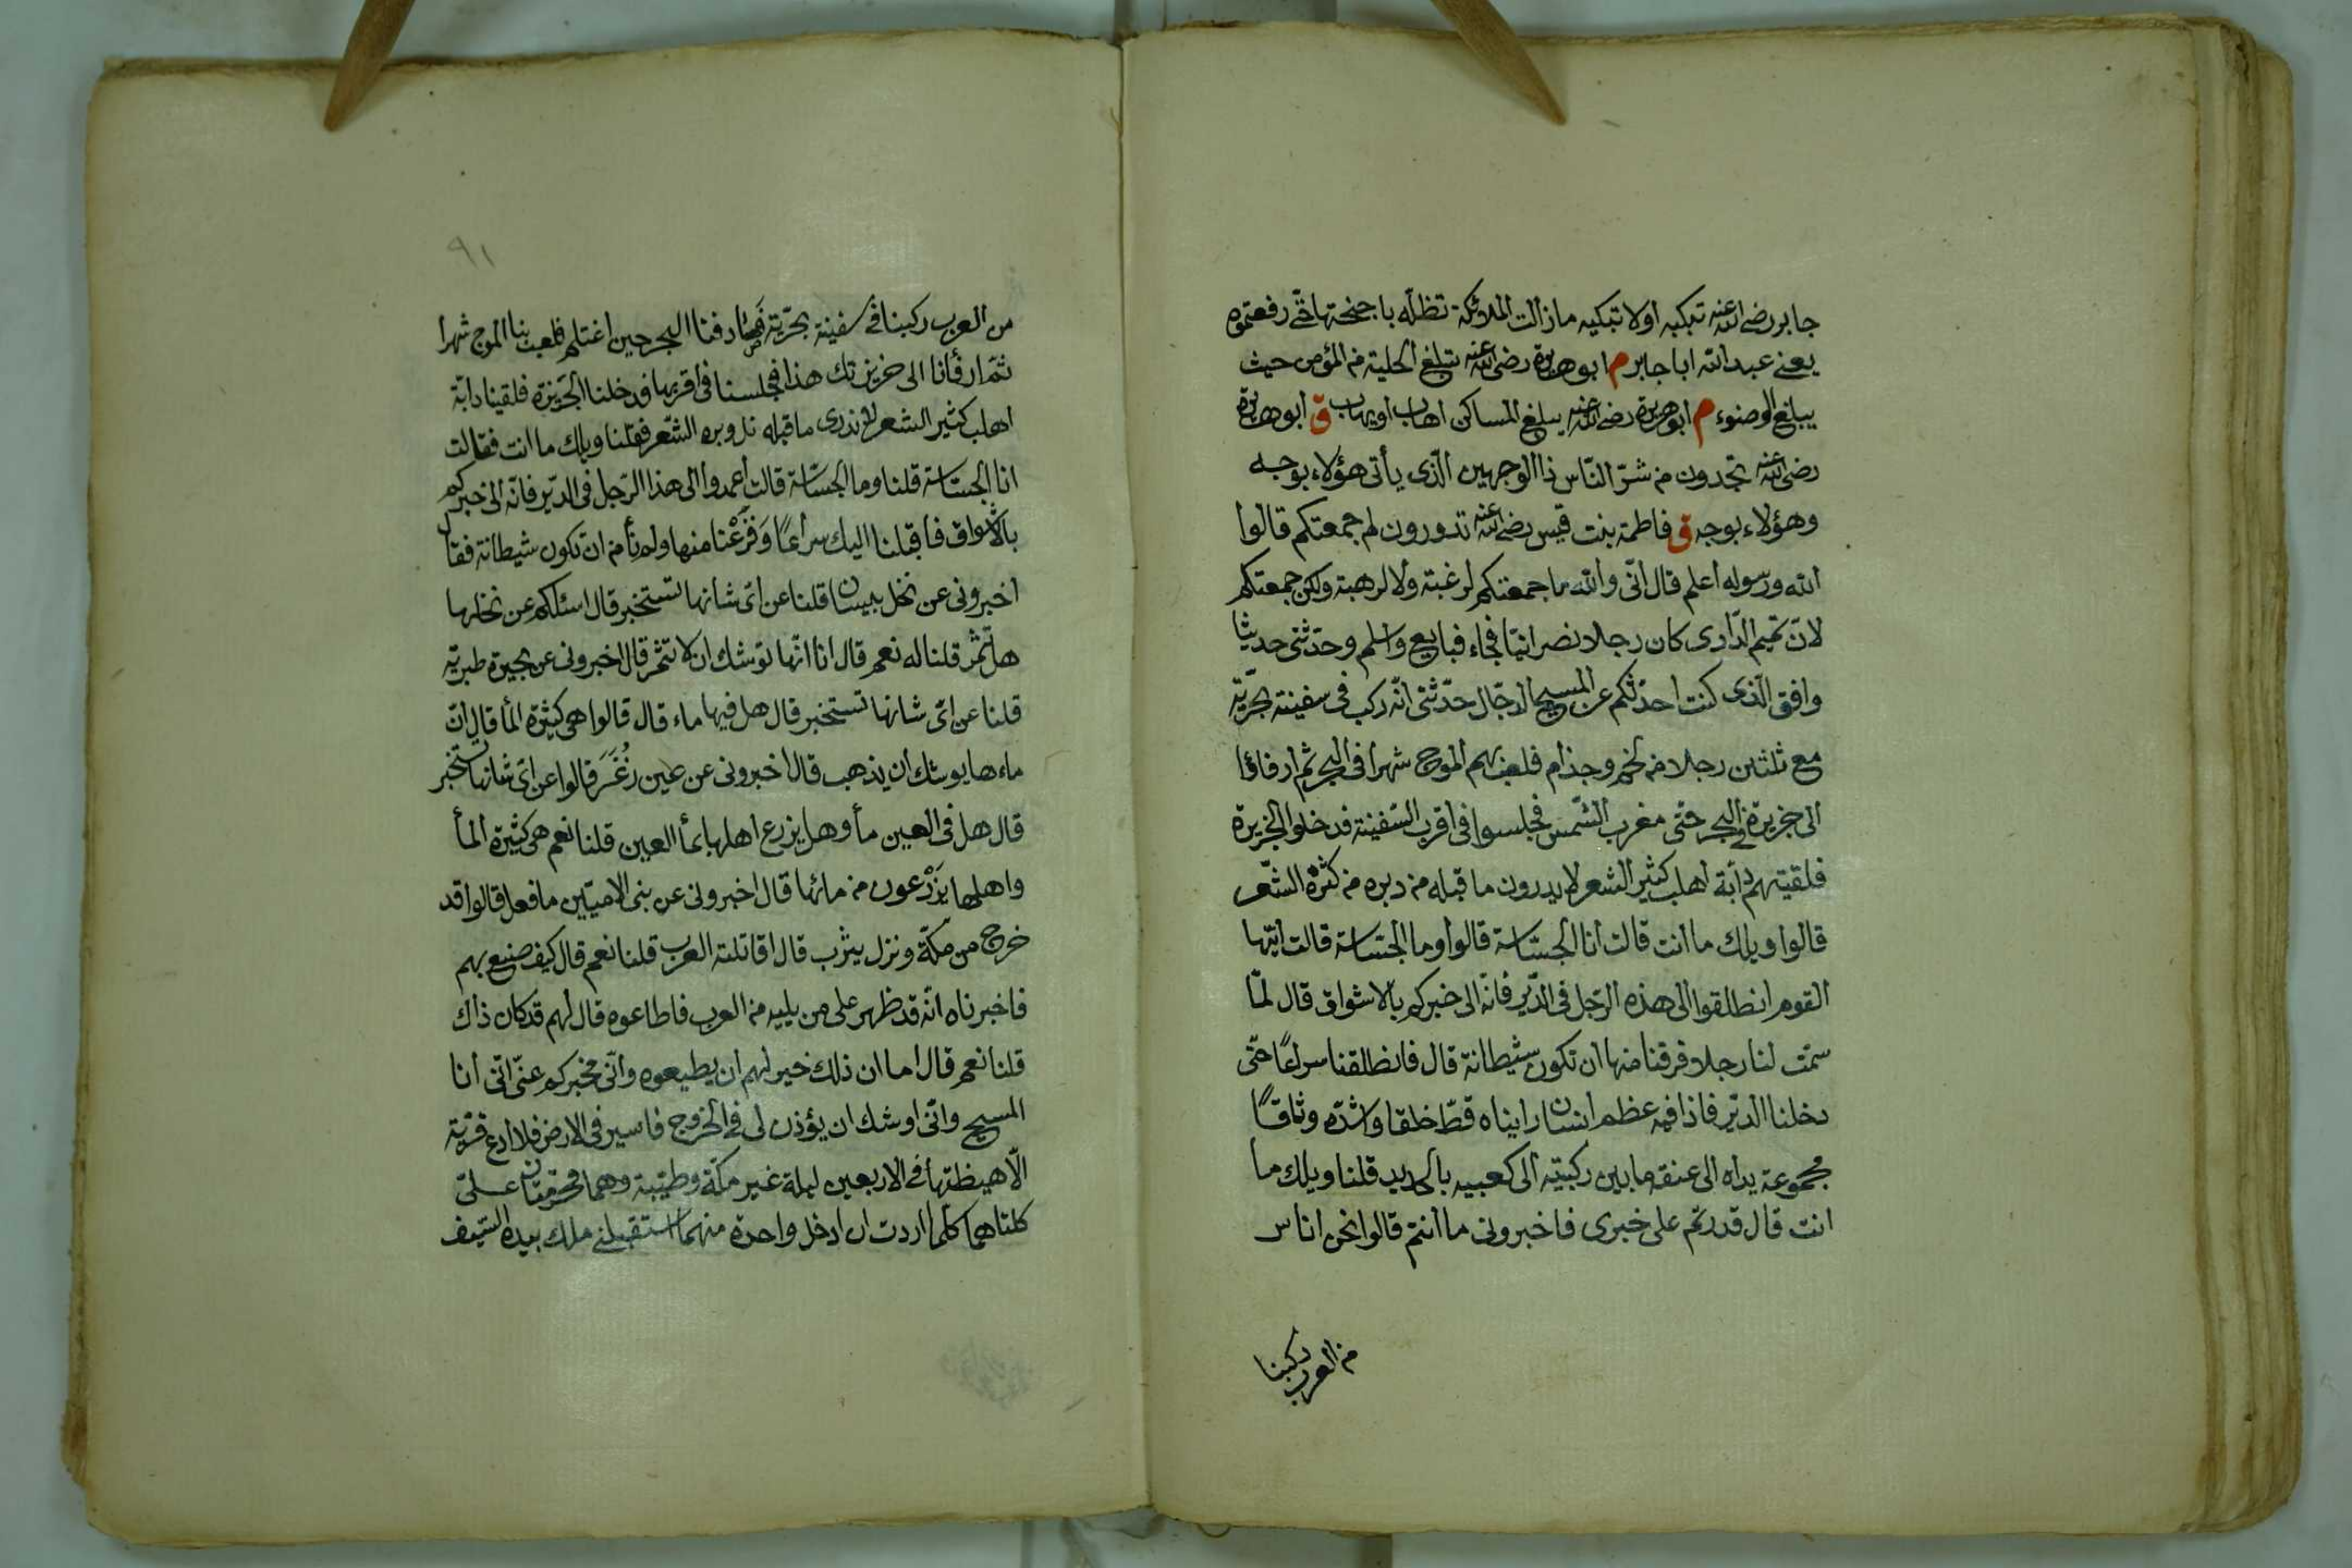 جابر رضى الله عنه تبكيه اولا تبكيه مازالت الملائكة تظلّه باجنحتها حتّى رفعتموه
يعنى عبد الله ابا جابر م ابو هريرة رضى الله عنه تبلغ الحلية من المؤمن حيث
يبلغ الوضوء م ابو هريرة رضى الله عنه يبلغ المساكن اهاب او يهاب ق ابو هريرة
رضى الله عنه تجدون من شرّ النّاس ذا الوجهين الّذى يأتى هؤلاء بوجه
وهؤلاء بوجه ق فاطمة بنت قيس رضى الله عنه تدورون لم جمعتكم قالوا
الله ورسوله اعلم قال انّى والله ما جمعتكم لرغبة ولا لرهبة ولكن جمعتكم
لانّ تميم الدّاوى كان رجلا نصرانيّا فجاء فبايع واسلم وحدّثنى حديثا
وافق الّذى كنت احدّثكم عن المسيح الدجّال حدّثنى انّه ركب فى سفينة بحريّة
مع ثلثين رجلا من لخم وجذام فلعب بهم الموج شهرا فى البحر ثم ارفاؤا
الى جزيرة فى البحر حتى مغرب الشّمس فجلسوا فى اقرب السّفينة فدخلوا الجزيرة
فلقيتهم دابّة اهلب كثير الشعر لا يدرون ما قبله من دبره من كثرة الشّعر
قالوا ويلك ما انت قالت انا الجسّاسة قالوا وما الجسّاسة قالت ايّها
القوم انطلقوا الى هذه الرّجل فى الدّير فانّه الى خبركم بالاشواق قال لمّا
سمّت لنا رجلا فرقنا منها ان تكون شيطانة قال فانطلقنا سراعًا حتّى
دخلنا الدّير فاذا فيه عظم انسان راينا ه قطّ خلقا واشدّه وثاقًا
مجموعة يداه الى عنقه ما بين ركبتيه الى كعبيه بالحديد قلنا ويلك ما
انت قال قدرتم على خبرى فاخبرونى ما انتم قالوا نحن اناس
من العرب ركبنا
٩١
من العرب ركبنا فى سفينة بحريّة فصادفنا البحر حين اغتلم فلعب بنا الموج شهرا
ثمّ ارفأنا الى جزيرتك هذا فجلسنا فى اقربها فدخلنا الجزيرة فلقينا دابّة
اهلب كثير الشعر لا ندرى ما قبله من دبره الشّعر فقلنا ويلك ما انت فقالت
انا الجسّاسة قلنا وما الجسّاسة قالت اعمدوا الى هذا الرّجل فى الدّير فانّه الى خبركم
بالاشواق فاقبلنا اليك سراعًا وَفَزِعْنا منها ولم نأمن ان تكون شيطانة فقال
اخبرونى عن نخل بيسان قلنا عن اىّ شانها تستخبر قال اسئلكم عن نخلها
هل تثمر قلنا له نعم قال اما انّها توشك ان لا تثمر قال اخبرونى عن بحيرة طبريّة
قلنا عن اىّ شانها تستخبر قال هل فيها ماء قال قالوا هى كثيرة المأ قال انّ
ماءها يوشك ان يذهب قال اخبرونى عن عين زُغَرَ قالوا عن اىّ شانها تستخبر
قال هل فى العين مأ وهل يزرع اهلها بمأ العين قلنا نعم هى كثيرة المأ
واهلها يَزْرعون من مائها قال اخبرونى عن بنى الاميّين ما فعل قالوا قد
خرج من مكّة ونزل يثرب قال اقاتلته العرب قلنا نعم قال كيف صنع بهم
فاخبرناه انّه قد ظهر على من يليه من العرب فاطاعوه قال لهم قد كان ذاك
قلنا نعم قال اما ان ذلك خير لهم ان يطيعوه وانّى مخبركم عنّى انّى انا
المسيح وانّى اوشك ان يؤذن لى فى الخروج فاسير فى الارض فلا ادع قرية
الّا هبطتها فى الاربعين ليلة غير مكّة وطيبة وهما محرّمتان علىّ
كلتاهما كلّما اردت ان ادخل واحدة منهما استقبلنى ملك بيده السّيف